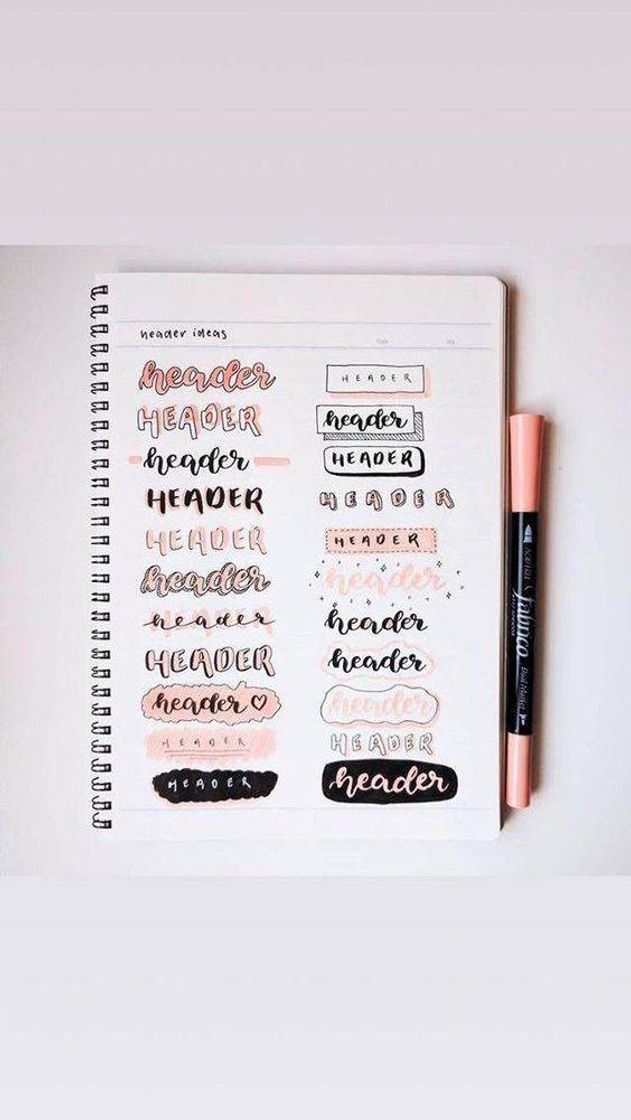 header ideas
header
HEADER
header
HEADER
HEADER
header
header
HEADER
header
HEADER
HEADER
HEADER
header
HEADER
HEADER
HEADER
header
header
header
header
HEADER
header
Fabrico
Dual Marker